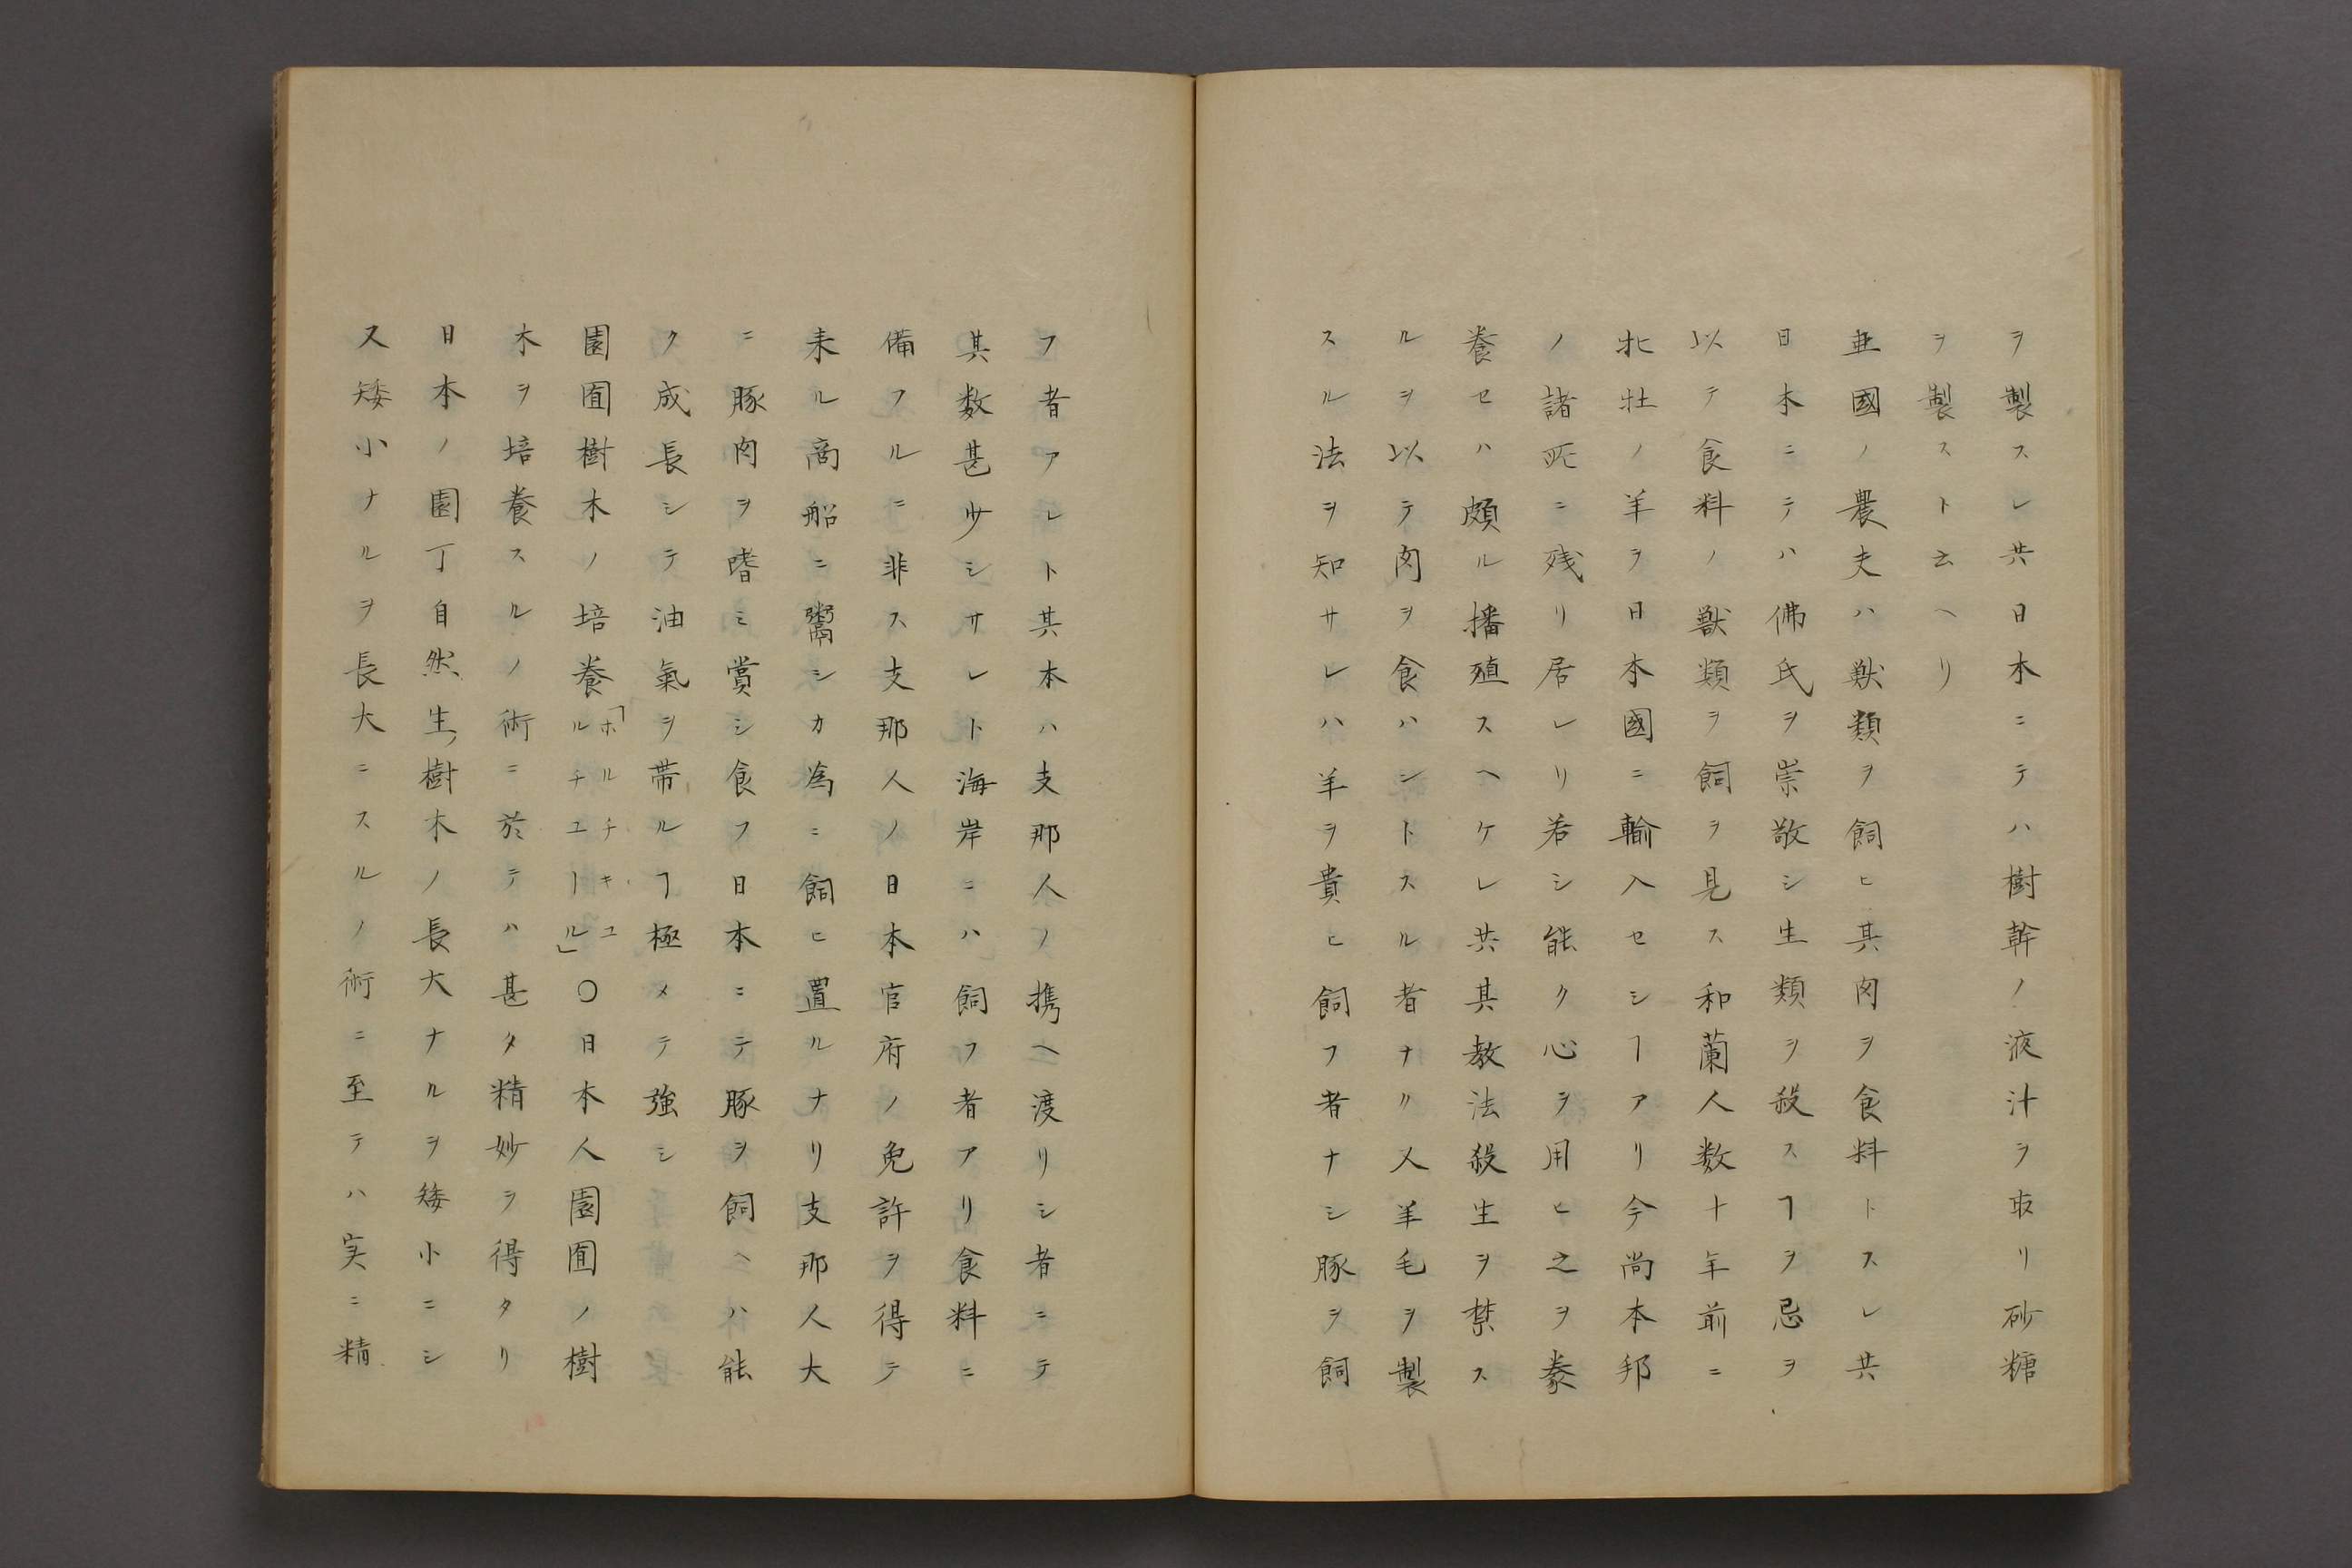 ヲ製スレ共日本ニテハ樹幹ノ液汁ヲ取リ砂糖
ヲ製スト云ヘリ
亜國ノ農夫ハ獣類ヲ飼ヒ其肉ヲ食料トスレ共
日本ニテハ佛氏ヲ崇敬シ生類ヲ殺スヿヲ忌ヲ
以テ食料ノ獣類ヲ飼ヲ見ス和蘭人数十年前ニ
牝牡ノ羊ヲ日本國ニ輸入セシヿアリ今尚本邦
ノ諸匹ニ残リ居レリ若シ能ク心ヲ用ヒ之ヲ豢
養セハ頗ル播殖スヘケレ共其教法殺生ヲ禁ス
ルヲ以テ肉ヲ食ハントスル者ナリ又羊毛ヲ製
スル法ヲ知サレハ羊ヲ貴ヒ飼フ者ナシ豚ヲ飼
フ者アレト其本ハ支那人ノ携ヘ渡リシ者ニテ
其数甚少シサレト海岸ニハ飼フ者アリ食料ニ
備フルニ非ス支那人ノ日本官府ノ免許ヲ得テ
来ル商船ニ鬻シカ為ニ飼ヒ置ルナリ支那人大
ニ豚肉ヲ嗜ミ賞シ食フ日本ニテ豚ヲ飼ヘハ能
ク成長シテ油氣ヲ帯ルヿ極メテ強シ
園囿樹木ノ培養「ホルチキュルチユール」〇日本人園囿ノ樹
木ヲ培養スルノ術ニ於テハ甚タ精妙ヲ得タリ
日本ノ園丁自然生、樹木ノ長大ナルヲ矮小ニシ
又矮小ナルヲ長大ニスルノ術ニ至テハ実ニ精